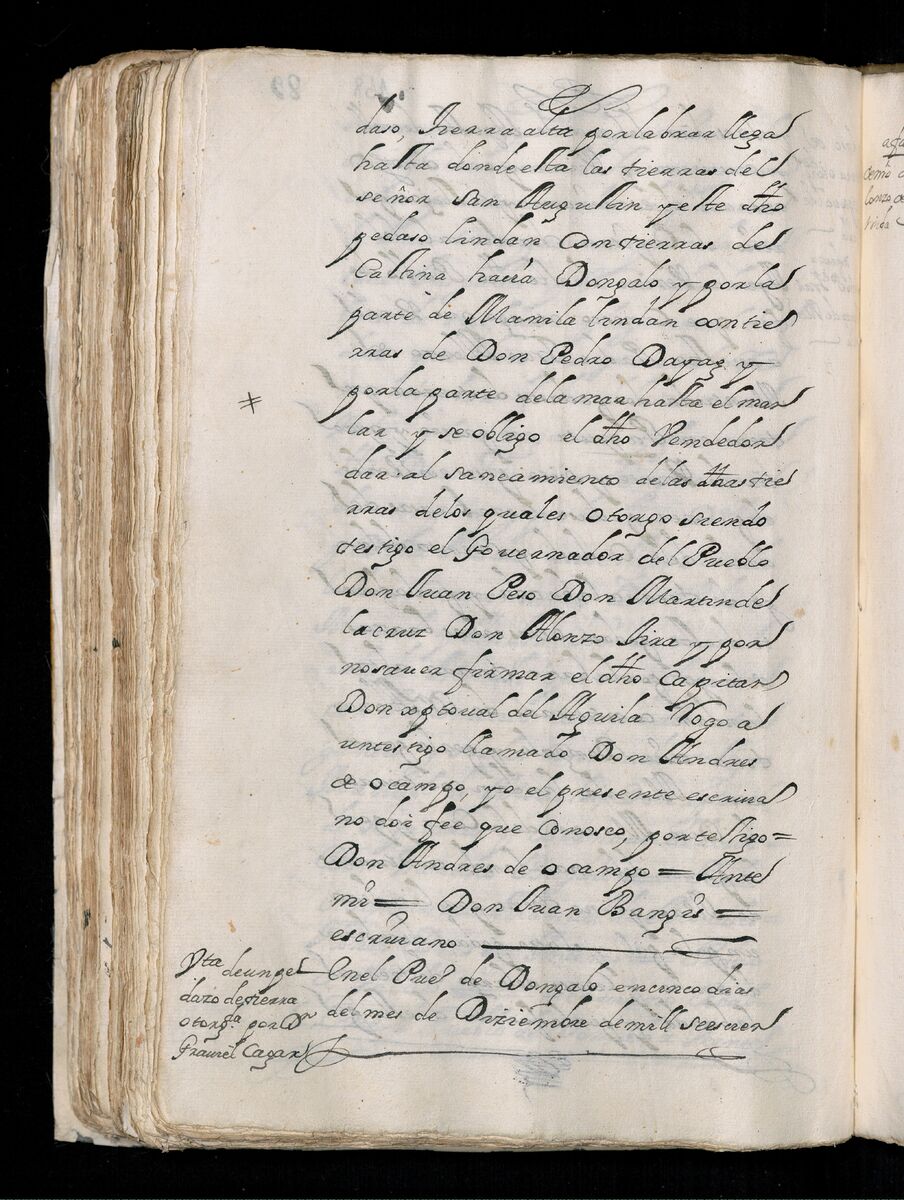 daso, tierra alta por labrar llega
hasta donde esta las tierras del
señor San Augustin y este dho
pedaso lindan con tierras de
Castina hacia Dongalo y por la
parte de Manila lindan con tie
rras de Don Pedro Dayag y
por la parte de la mar hasta el man
lar y se obligo el dho Vendedor
dar al saneamiento delas dhas tie
rras delos quales otorgo siendo
testigo el Governador del Pueblo
Don Juan Peso Don Martin de
la cruz Don Alonzo Sira y por
no saver firmar el dho Capitan
Don xptoual del Aguila Rogo a
un testigo llamado Don Andres
de ocampo, yo el presente escriva
no doi fee que Conosco, por testigo =
Don Andres de ocampo = Ante
mi = Don Juan Bangis =
escrivano
Vta de un pe
dazo de tierra
otorgda por Dn
Graviel Cagan
En el Pueo de Dongalo en cinco dias
del mes de Diziembre de mill seiscien